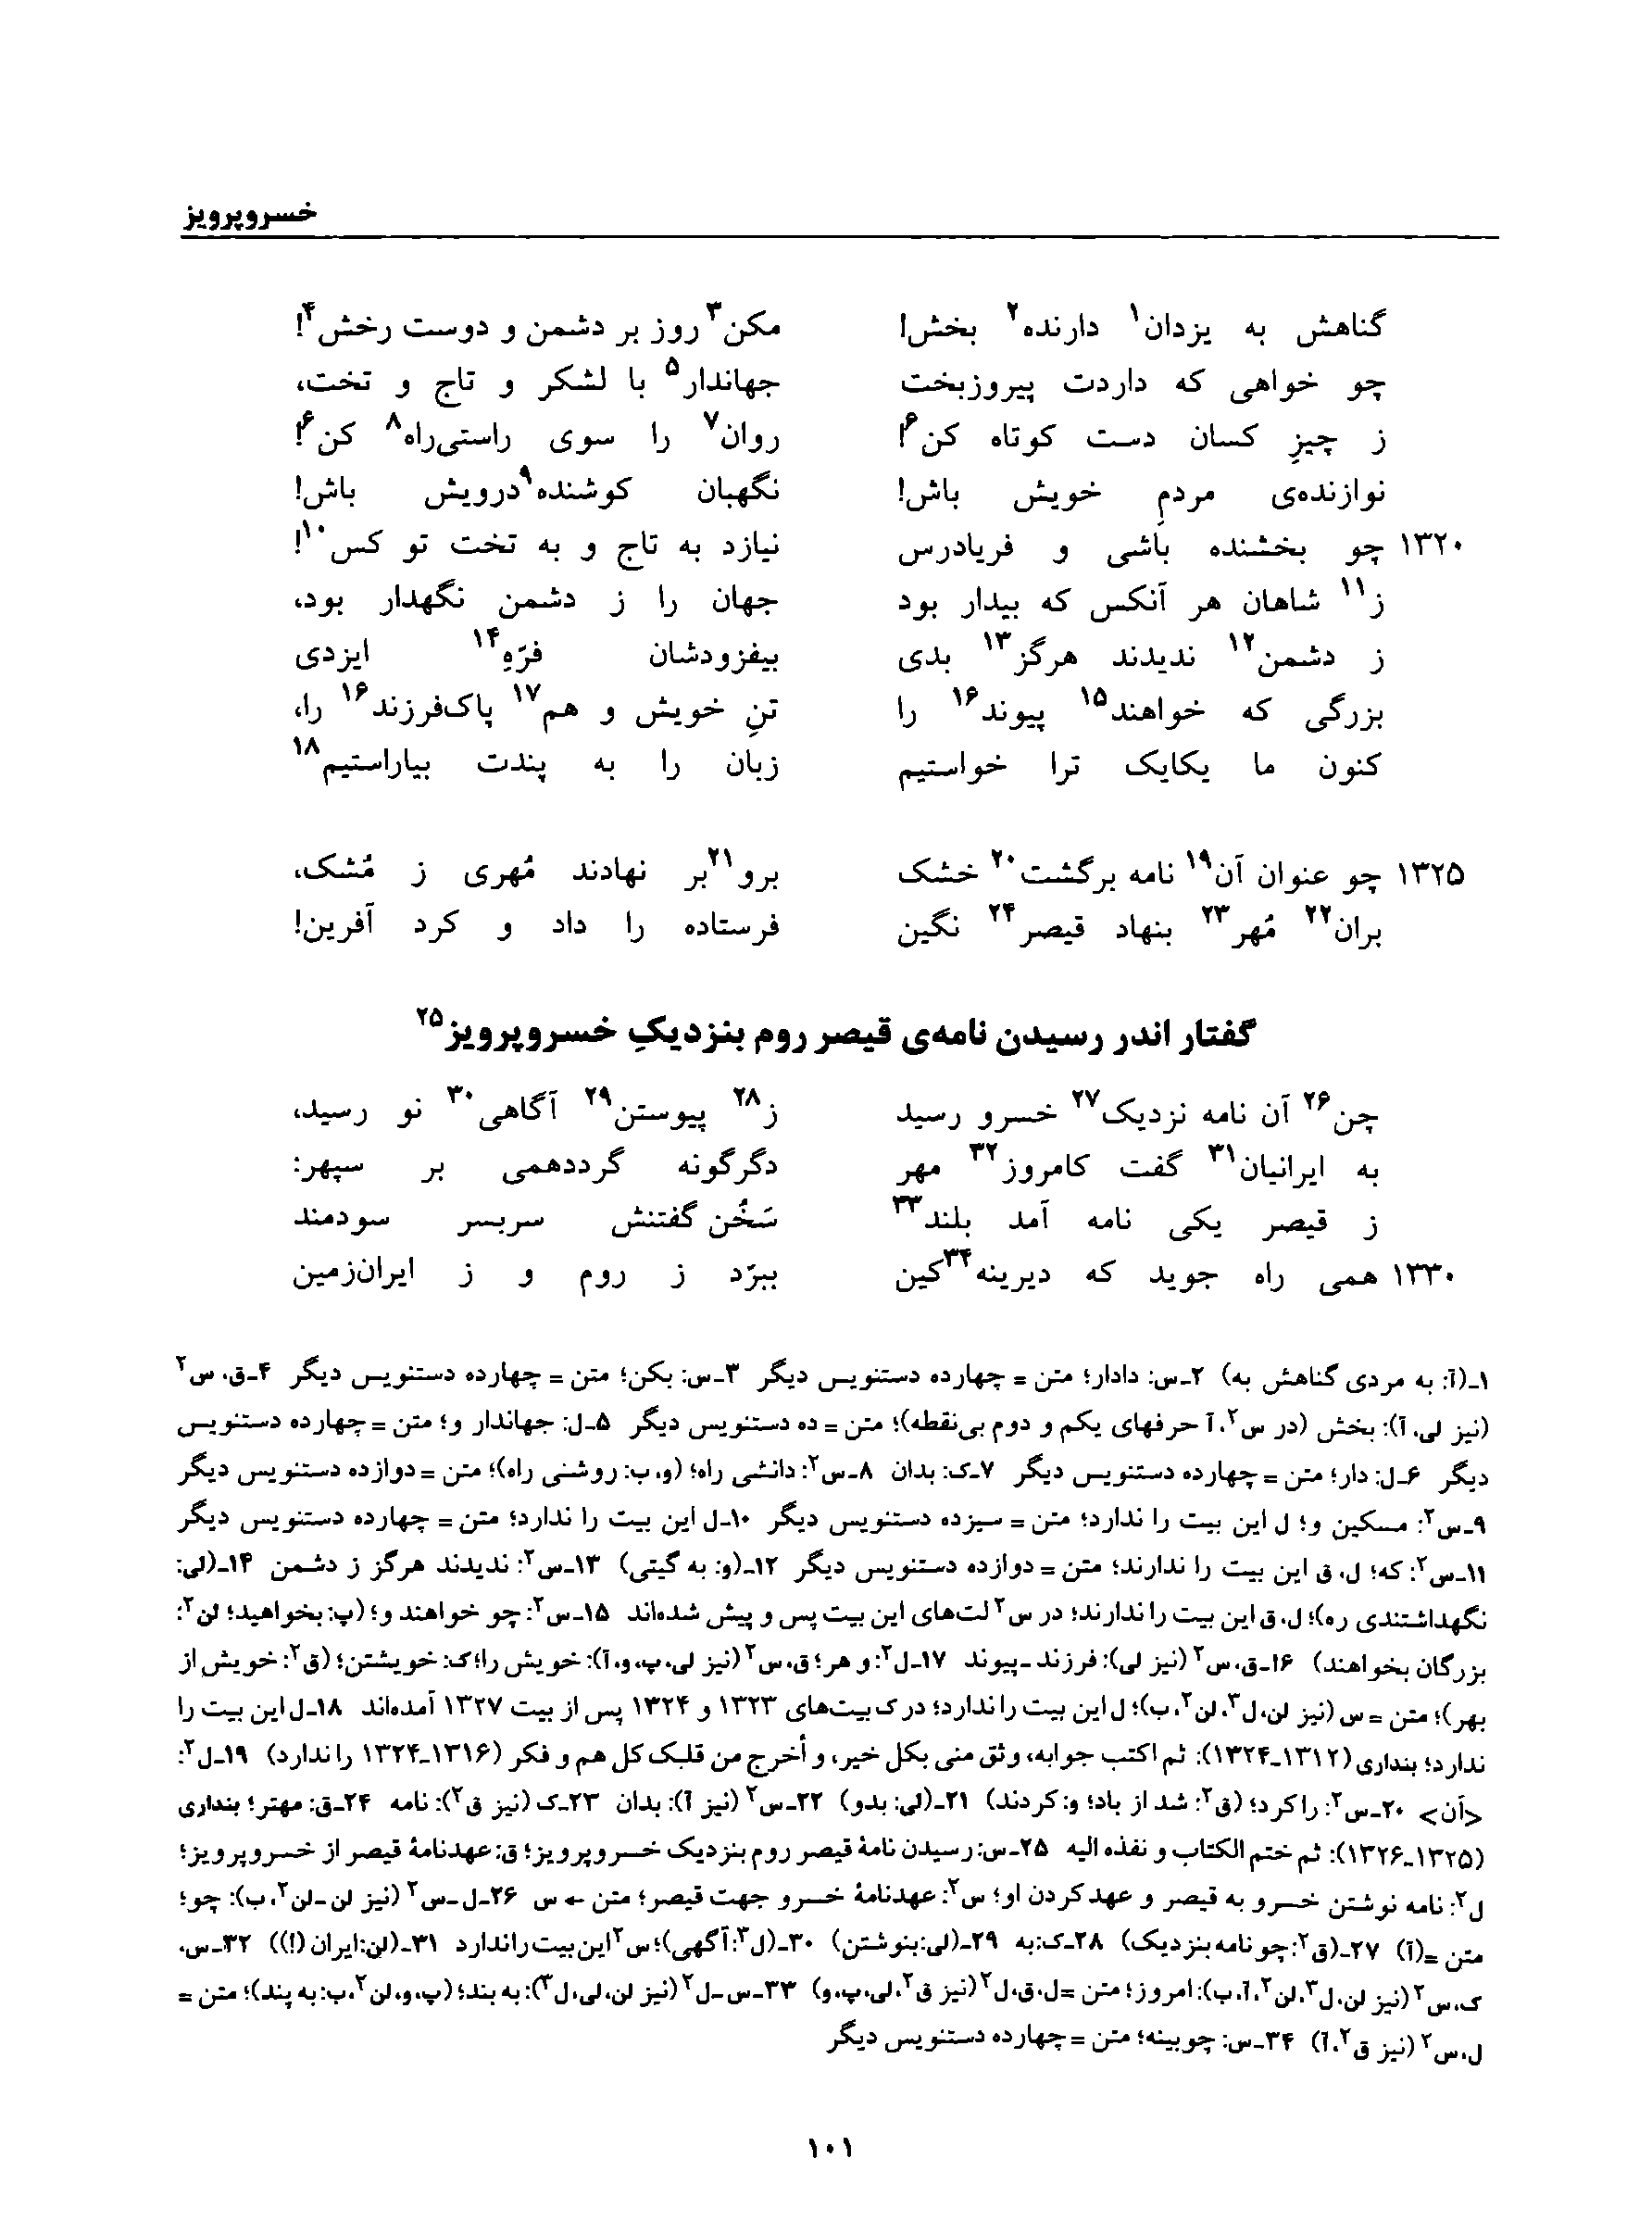 خسروپرویز
گناهش به یزدان۱ دارنده۲ بخش! مکن۳ روز بر دشمن و دوست رخش۴!
چو خواهی که داردت پیروزبخت جهاندار۵ با لشکر و تاج و تخت،
ز چیزِ کسان دست کوتاه کن۶! روان۷ را سوی راستی‌راه۸ کن۶!
نوازنده‌ی مردمِ خویش باش! نگهبان کوشنده۹درویش باش!
۱۳۲۰ چو بخشنده باشی و فریادرس نیازد به تاج و به تخت تو کس۱۰!
ز۱۱ شاهان هر آنکس که بیدار بود جهان را ز دشمن نگهدار بود،
ز دشمن۱۲ ندیدند هرگز۱۳ بدی بیفزودشان فرّهِ۱۴ ایزدی
بزرگی که خواهند۱۵ پیوند۱۶ را تنِ خویش و هم۱۷ پاک‌فرزند۱۶ را،
کنون ما یکایک ترا خواستیم زبان را به پندت بیاراستیم۱۸
۱۳۲۵ چو عنوان آن۱۹ نامه برگشت۲۰ خشک برو۲۱بر نهادند مُهری ز مُشک،
بران۲۲ مُهر۲۳ بنهاد قیصر۲۴ نگین فرستاده را داد و کرد آفرین!
گفتار اندر رسیدن نامه‌ی قیصر روم بنزدیکِ خسروپرویز۲۵
چن۲۶ آن نامه نزدیک۲۷ خسرو رسید ز۲۸ پیوستن۲۹ آگاهی۳۰ نو رسید،
به ایرانیان۳۱ گفت کامروز۳۲ مهر دگرگونه گرددهمی بر سپهر:
ز قیصر یکی نامه آمد بلند۳۳ سَخُن گفتنش سربسر سودمند
۱۳۳۰ همی راه جوید که دیرینه۳۴کین ببرّد ز روم و ز ایران‌زمین
۱ـ(آ: به مردی گناهش به) ۲ـس: دادار؛ متن = چهارده دستنویس دیگر ۳ـس: بکن؛ متن = چهارده دستنویس دیگر ۴ـق، س۲
(نیز لی، آ): بخش (در س۲، آ حرفهای یکم و دوم بی‌نقطه)؛ متن = ده دستنویس دیگر ۵ـل: جهاندار و؛ متن = چهارده دستنویس
دیگر ۶ـل: دار؛ متن = چهارده دستنویس دیگر ۷ـک: بدان ۸ـس۲: دانشی راه؛ (و، ب: روشنی راه)؛ متن = دوازده دستنویس دیگر
۹ـس۲: مسکین و؛ ل این بیت را ندارد؛ متن = سیزده دستنویس دیگر ۱۰ـل این بیت را ندارد؛ متن = چهارده دستنویس دیگر
۱۱ـس۲: که؛ ل، ق این بیت را ندارند؛ متن = دوازده دستنویس دیگر ۱۲ـ(و: به گیتی) ۱۳ـس۲: ندیدند هرگز ز دشمن ۱۴ـ(لی:
نگهداشتندی ره)؛ ل، ق این بیت را ندارند؛ در س۲ لت‌های این بیت پس و پیش شده‌اند ۱۵ـس۲: چو خواهند و؛ (پ: بخواهید؛ لن۲:
بزرگان بخواهند) ۱۶ـق، س۲ (نیز لی): فرزند ـ پیوند ۱۷ـل۲: و هر؛ ق، س۲ (نیز لی، پ، و، آ): خویش را؛ ک: خویشتن؛ (ق۲: خویش از
بهر)؛ متن = س (نیز لن، ل۳، لن۲، ب)؛ ل این بیت را ندارد؛ در ک بیت‌های ۱۳۲۳ و ۱۳۲۴ پس از بیت ۱۳۲۷ آمده‌اند ۱۸ـل این بیت را
ندارد؛ بنداری (۱۳۱۲ـ۱۳۲۴): ثم اکتب جوابه، وثق منی بکل خیر، و أخرج من قلبک کل هم و فکر (۱۳۱۶ـ۱۳۲۴ را ندارد) ۱۹ـل۲:
<آن> ۲۰ـس۲: را کرد؛ (ق۲: شد از باد؛ و: کردند) ۲۱ـ(لی: بدو) ۲۲ـس۲ (نیز آ): بدان ۲۳ـک (نیز ق۲): نامه ۲۴ـق: مهتر؛ بنداری
(۱۳۲۵ـ۱۳۲۶): ثم ختم الکتاب و نفذه الیه ۲۵ـس: رسیدن نامهٔ قیصر روم بنزدیک خسروپرویز؛ ق: عهدنامهٔ قیصر از خسروپرویز؛
ل۲: نامه نوشتن خسرو به قیصر و عهد کردن او؛ س۲: عهدنامهٔ خسرو جهت قیصر؛ متن ← س ۲۶ـل ـ س۲ (نیز لن ـ لن۲، ب): چو؛
متن =(آ) ۲۷ـ(ق۲: چو نامه بنزدیک) ۲۸ـک: به ۲۹ـ(لی: بنوشتن) ۳۰ـ(ل۳: آگهی)؛ س۲ این بیت را ندارد ۳۱ـ(لن: ایران (!)) ۳۲ـس،
ک، س۲ (نیز لن، ل۳، لن۲، آ، ب): امروز؛ متن =ل، ق، ل۲ (نیز ق۲، لی، پ، و) ۳۳ـس ـ ل۲ (نیز لن، لی، ل۳): به بند؛ (پ، و، لن۲، ب: به پند)؛ متن =
ل، س۲ (نیز ق۲، آ) ۳۴ـس: چوبینه؛ متن = چهارده دستنویس دیگر
۱۰۱